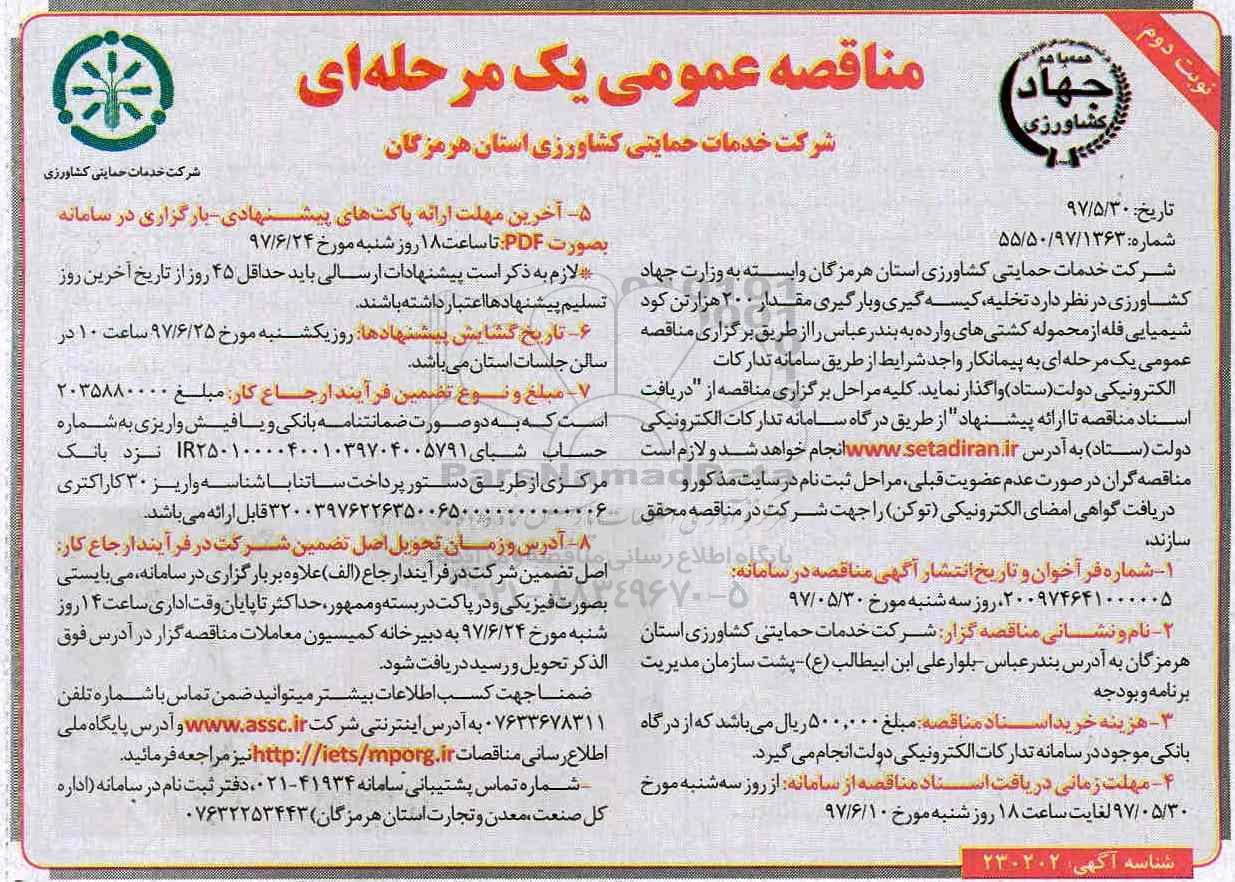 نوبت دوم
همه با هم
جهاد
کشاورزی
مناقصه عمومی یک مرحله‌ای
شرکت خدمات حمایتی کشاورزی استان هرمزگان
شرکت خدمات حمایتی کشاورزی
تاریخ: ۹۷/۵/۳۰
شماره: ۵۵/۵۰/۹۷/۱۳۶۳
شرکت خدمات حمایتی کشاورزی استان هرمزگان وابسته به وزارت جهاد
کشاورزی در نظر دارد تخلیه، کیسه گیری وبارگیری مقدار ۲۰۰ هزار تن کود
شیمیایی فله از محموله کشتی های وارده به بندرعباس را از طریق برگزاری مناقصه
عمومی یک مرحله‌ای به پیمانکار واجد شرایط از طریق سامانه تدارکات
الکترونیکی دولت(ستاد)واگذار نماید. کلیه مراحل برگزاری مناقصه از "دریافت
اسناد مناقصه تا ارائه پیشنهاد" از طریق درگاه سامانه تدارکات الکترونیکی
دولت (ستاد) به آدرس www.setadiran.ir انجام خواهد شد و لازم است
مناقصه گران در صورت عدم عضویت قبلی، مراحل ثبت نام در سایت مذکور و
دریافت گواهی امضای الکترونیکی (توکن) را جهت شرکت در مناقصه محقق
سازند،
۱-شماره فرآخوان و تاریخ انتشار آگهی مناقصه در سامانه:
۲۰۰۹۷۴۶۴۱۰۰۰۰۰۵، روز سه شنبه مورخ ۹۷/۰۵/۳۰
۲-نام و نشانی مناقصه گزار: شرکت خدمات حمایتی کشاورزی استان
هرمزگان به آدرس بندرعباس-بلوار علی ابن ابیطالب (ع)-پشت سازمان مدیریت
برنامه و بودجه
۳-هزینه خرید اسناد مناقصه: مبلغ ۵۰۰,۰۰۰ ریال می باشد که از درگاه
بانکی موجود در سامانه تدارکات الکترونیکی دولت انجام می گیرد.
۴-مهلت زمانی دریافت اسناد مناقصه از سامانه: از روز سه شنبه مورخ
۹۷/۰۵/۳۰ لغایت ساعت ۱۸ روز شنبه مورخ ۹۷/۶/۱۰
۵- آخرین مهلت ارائه پاکت‌های پیشنهادی-بارگزاری در سامانه
بصورت PDF: تا ساعت ۱۸ روز شنبه مورخ ۹۷/۶/۲۴
*لازم به ذکر است پیشنهادات ارسالی باید حداقل ۴۵ روز از تاریخ آخرین روز
تسلیم پیشنهادها اعتبار داشته باشند.
۶- تاریخ گشایش پیشنهادها: روز یکشنبه مورخ ۹۷/۶/۲۵ ساعت ۱۰ در
سالن جلسات استان می باشد.
۷- مبلغ و نوع تضمین فرآیند ارجاع کار: مبلغ ۲۰۳۵۸۸۰۰۰۰
است که به دو صورت ضمانتنامه بانکی و یا فیش واریزی به شماره
حساب شبای IR۲۵۰۱۰۰۰۰۴۰۰۱۰۳۹۷۰۴۰۰۵۷۹۱ نزد بانک
مرکزی از طریق دستور پرداخت ساتنا با شناسه واریز ۳۰ کاراکتری
۳۲۰۰۳۹۷۶۲۲۶۳۵۰۰۶۵۰۰۰۰۰۰۰۰۰۰۰۰۰۶ قابل ارائه می باشد.
۸- آدرس و زمان تحویل اصل تضمین شرکت در فرآیند ارجاع کار:
اصل تضمین شرکت در فرآیند ارجاع (الف) علاوه بر بارگزاری در سامانه، می بایستی
بصورت فیزیکی و در پاکت دربسته و ممهور، حداکثر تا پایان وقت اداری ساعت ۱۴ روز
شنبه مورخ ۹۷/۶/۲۴ به دبیرخانه کمیسیون معاملات مناقصه گزار در آدرس فوق
الذکر تحویل و رسید دریافت شود.
ضمنا جهت کسب اطلاعات بیشتر میتوانید ضمن تماس با شماره تلفن
۰۷۶۳۳۶۷۸۳۱۱ به آدرس اینترنتی شرکت www.assc.ir و آدرس پایگاه ملی
اطلاع رسانی مناقصات http://iets/mporg.ir نیز مراجعه فرمائید.
-شماره تماس پشتیبانی سامانه ۴۱۹۳۴-۰۲۱، دفتر ثبت نام در سامانه (اداره
کل صنعت، معدن و تجارت استان هرمزگان) ۰۷۶۳۲۲۵۳۴۴۳
شناسه آگهی: ۲۳۰۲۰۲
ParsNamadData
پایگاه اطلاع رسانی مناقصه
۰۲۱-۸۸۳۴۹۶۷۰-۵